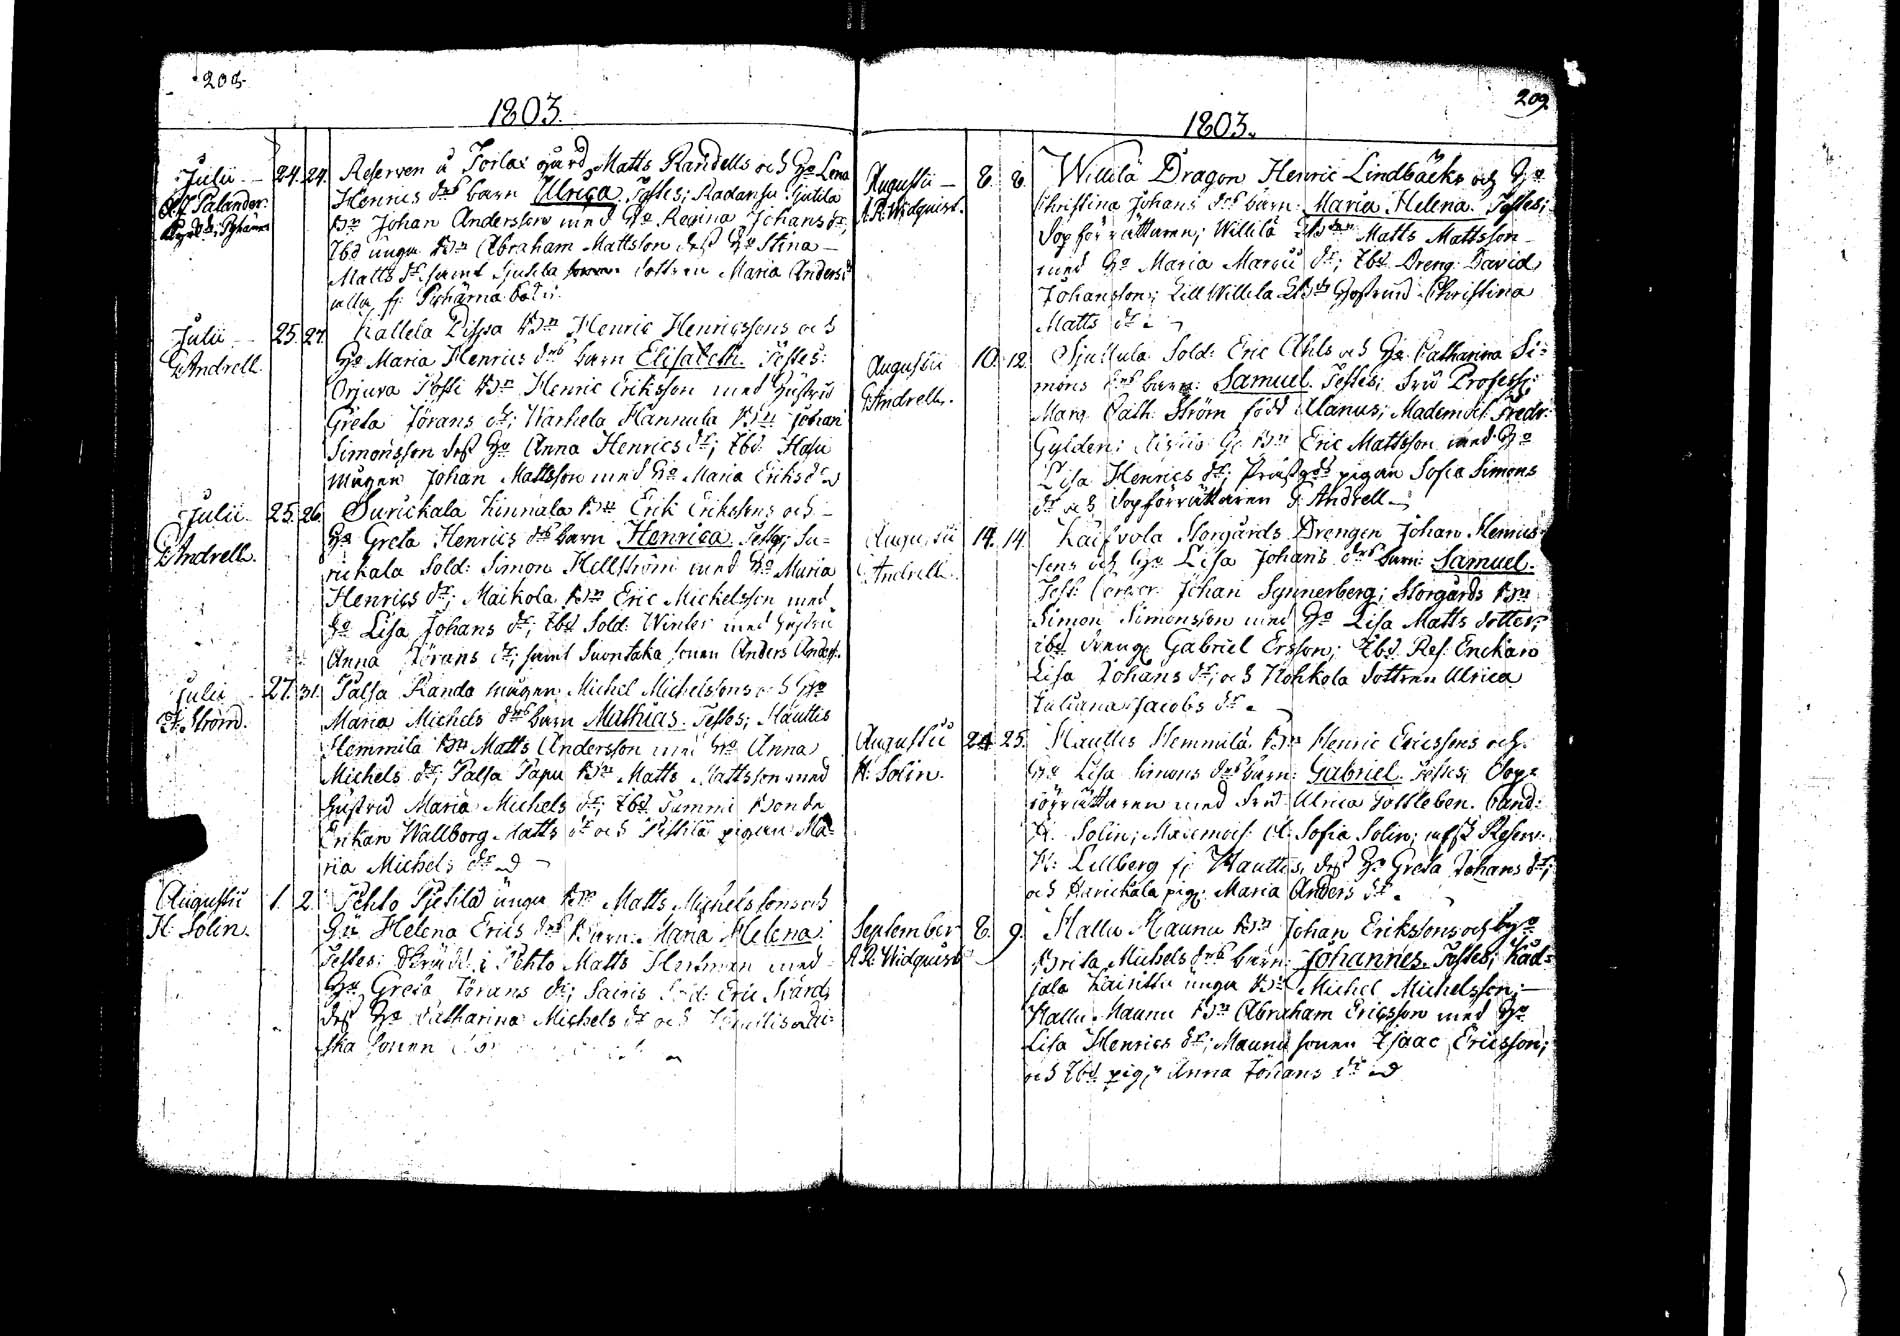 208.
1803.
Julii 24. 24. Reserven å Torlax gård Matts Randells och H:o Lena
A:F: Palander. Henrics d:rs barn Ulrica. Testes; Radansu Sjutila
B:n Johan Andersson med H:o Regina Johans d:r;
Ibd unga B:n Abraham Mattsson dess H:o Stina
Matts d:r samt Sjutila dottren Maria Anders d:r
alla fr:
Julii 25. 27. Kallela Dispa B:n Henric Henricssons och
G Andrell. H:o Maria Henrics d:rs barn Elisabeth. Testes:
Orjura Possi B:n Henric Eriksson med Hustrus
Greta Jörans d:r; Warhela Hannula B:n Johan
Simonsson dess H:o Anna Henrics d:r; Ibd:
mågen Johan Mattsson med H:o Maria Eriks d:r
Julii 25. 26. Surickala Kinnala B:n Erik Erikssons och
G Andrell. H:o Greta Henrics d:rs barn Henrica. Testes; Su=
rickala Sold: Simon Hellström med H:o Maria
Henrics d:r; Maikola B:n Eric Mickelsson med
H:o Lisa Johans d:r; Ibd Sold: Winter med hustru
Anna Jörans d:r; samt Suontaka sonen Anders Anders.
Julii 27. 31. Palsa Randa mågen Michel Michelssons och H:o
Ström. Maria Michels d:rs barn Mathias. Testes; Hauttis
Hemmilä B:n Matts Andersson med H:o Anna
Michels d:r; Palsa Papu B:n Matts Mattsson med
Hustrus Maria Michels d:r; Ibd Tammi Bonde
Enkan Wallborg Matts d:r och Pistilä pigan Ma=
ria Michels d:r
Augustii 1. 2. Pehto Pietilä unga B:n Matts Michelssons och
H: Solin. H:o Helena Erics d:rs Barn: Maria Helena.
Testes: i Pehto Matts med
H:o Greta Jörans d:r; Sairis Sold: Eric Svärd,
dess H:o Catharina Michels d:r och
ska sonen
209
1803.
Augustii 8. 8. Willilä Dragon Henric Lindbäcks och H:o
A R: Widquist. Christina Johans d:rs barn: Maria Helena. Testes;
Dopförrättaren; Willilä Matts Mattsson
med H:o Maria Marcus d:r; Ibd. Dreng: David
Johansson; Lill Willila Hustrun Christina
Matts d:r
Augustii 10. 12. Sjuttula Sold: Eric Ahls och H:o Catharina Si=
G Andrell. mons d:rs barn: Samuel. Testes; Fru Profess:
Marg. Cath: Ström född Alanus; Mademois: Fredr:
Gylden: B:n Eric Mattsson med H:o
Lisa Henrics d:r; Prästgds pigan Sofia Simons
d:r och Dopförrättaren G: Andrell
Augustii 14. 14. Kaifvola Storgårds Drengen Johan Henrics=
G Andrell. sons och H:o Lisa Johans d:rs barn: Samuel.
Test: Johan Synnerberg; Storgårds B:n
Simon Simonsson med H:o Lisa Matts dotter;
ibd drenge Gabriel Ersson; Ibd. Res: Enckan
Lisa Johans d:r; och Kohkola dottren Ulrica
Juliana Jacobs d:r
Augustii 24 25. Hauttis Hemmilä B:n Henric Ericssons och
H: Solin. H:o Lisa Simons d:rs barn: Gabriel. Testes; Dop=
förrättaren med Fru Ulrica Gottleben. Cand:
H: Solin; Mademois: A: Sofia Solin; afsk Reserv:
H: Lillberg fr: Hauttis, dess H:o Greta Johans d:r;
och Hurickala pig: Maria Anders d:r
September 8. 9. Hallu Maunu B:n Johan Erikssons och H:o
A R: Widquist Brita Michels d:rs barn: Johannes. Testes; Kad=
jala Kairittu unga B:n Michel Michelsson;
Hallu Maunu B:n Abraham Ericsson med H:o
Lisa Henrics d:r; Maunu sonen Isaac Ericsson;
och Ibd. pig: Anna Johans d:r